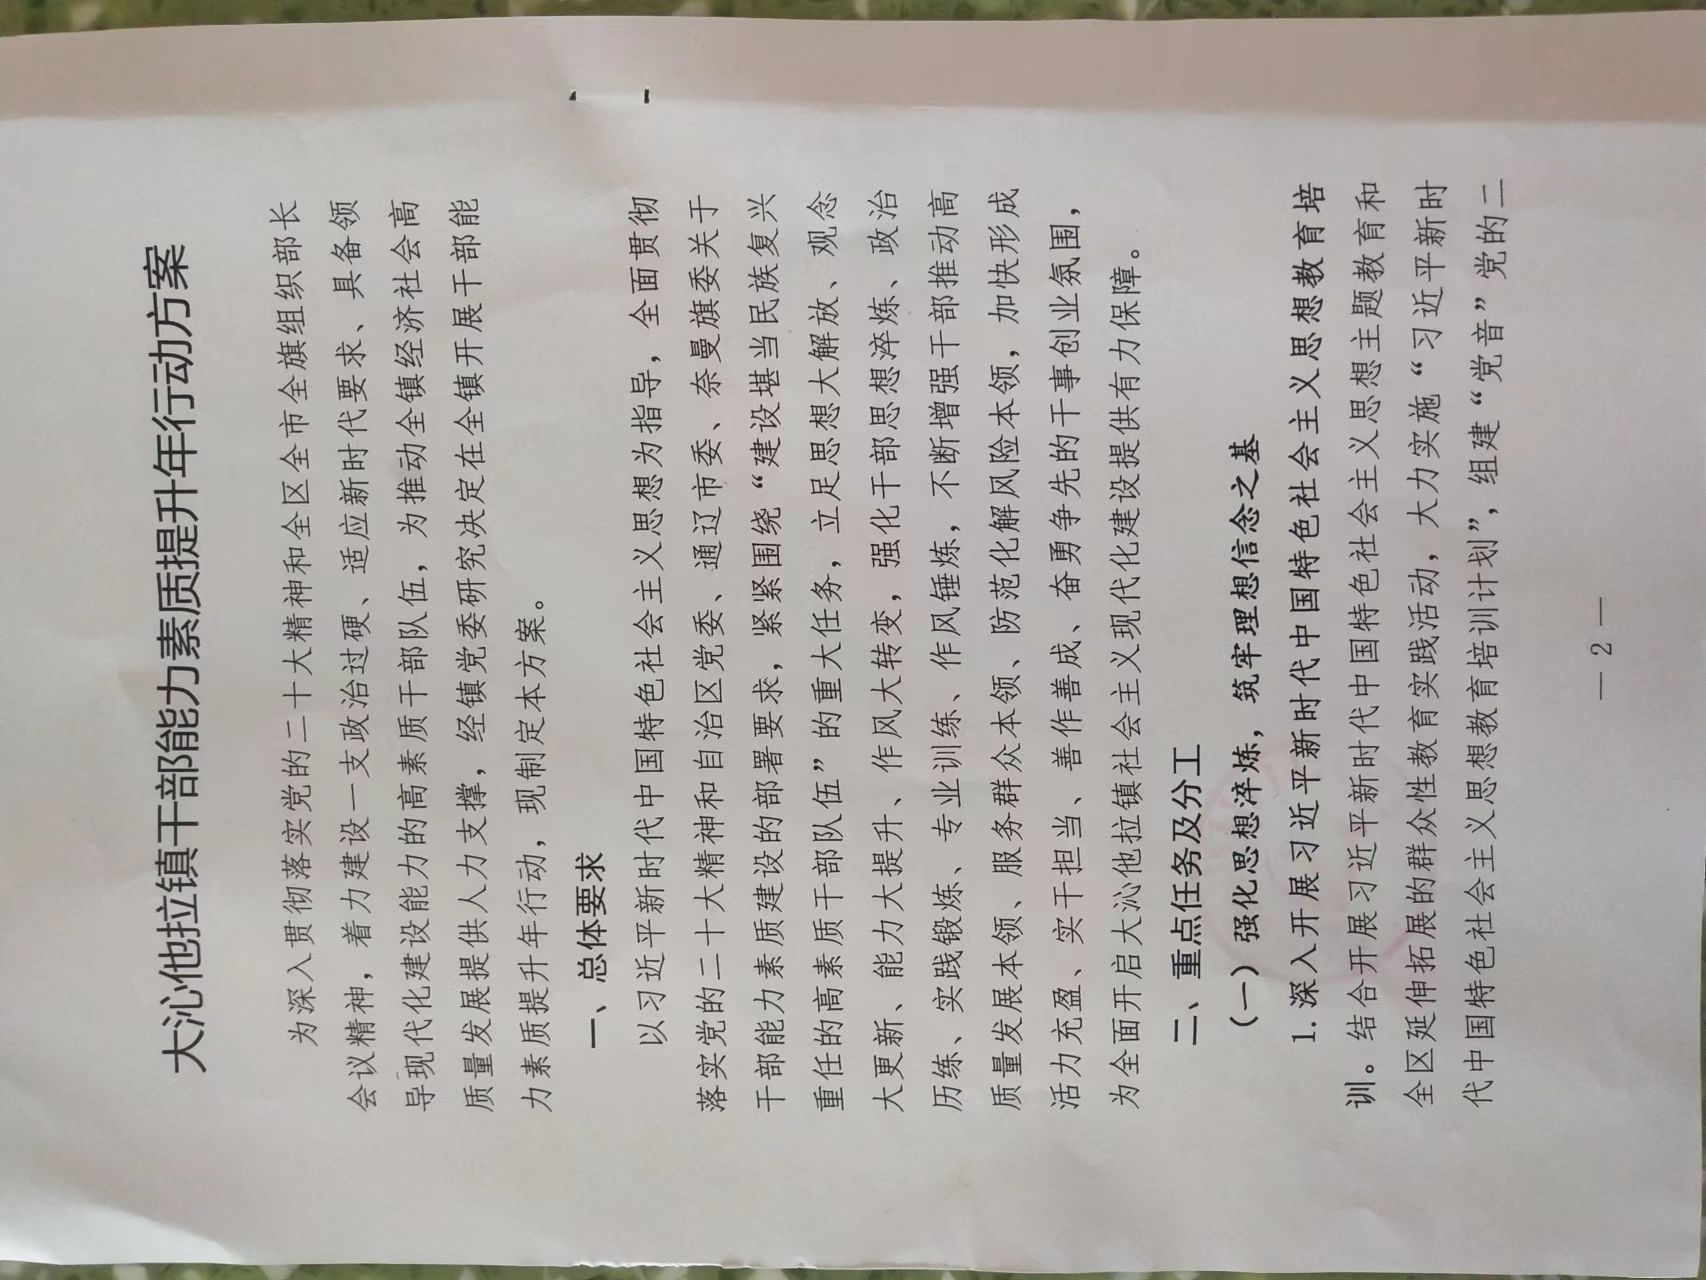 大沁他拉镇干部能力素质提升年行动方案
为深入贯彻落实党的二十大精神和全区全市全旗组织部长
会议精神，着力建设一支政治过硬、适应新时代要求、具备领
导现代化建设能力的高素质干部队伍，为推动全镇经济社会高
质量发展提供人力支撑，经镇党委研究决定在全镇开展干部能
力素质提升年行动，现制定本方案。
一、总体要求
以习近平新时代中国特色社会主义思想为指导，全面贯彻
落实党的二十大精神和自治区党委、通辽市委、奈曼旗委关于
干部能力素质建设的部署要求，紧紧围绕“建设堪当民族复兴
重任的高素质干部队伍”的重大任务，立足思想大解放、观念
大更新、能力大提升、作风大转变，强化干部思想淬炼、政治
历练、实践锻炼、专业训练、作风锤炼，不断增强干部推动高
质量发展本领、服务群众本领、防范化解风险本领，加快形成
活力充盈、实干担当、善作善成、奋勇争先的干事创业氛围，
为全面开启大沁他拉镇社会主义现代化建设提供有力保障。
二、重点任务及分工
（一）强化思想淬炼，筑牢理想信念之基
1.深入开展习近平新时代中国特色社会主义思想教育培
训。结合开展习近平新时代中国特色社会主义思想主题教育和
全区延伸拓展的群众性教育实践活动，大力实施“习近平新时
代中国特色社会主义思想教育培训计划”，组建“党音”党的二
— 2 —